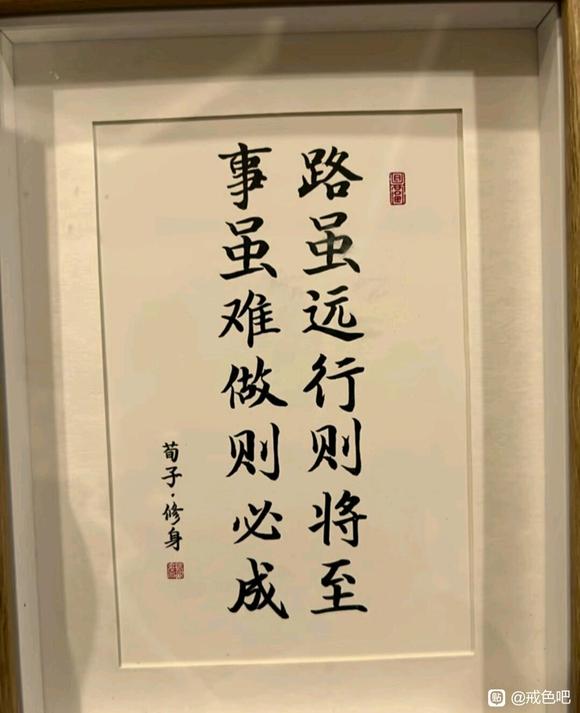 路虽远行则将至
事虽难做则必成
荀子·修身
贴 @戒色吧